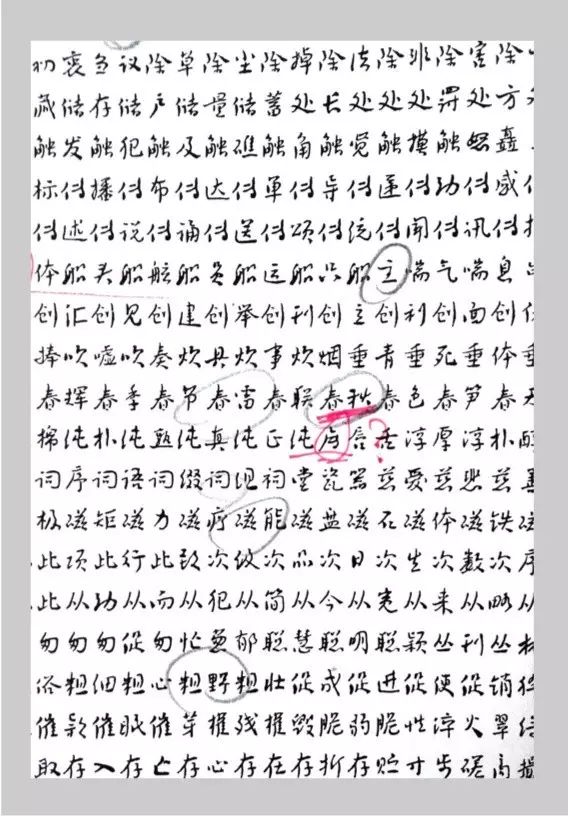 初衷刍议除草除尘除掉除法除非除害除
藏储存储户储量储蓄处长处处处罚处方
触发触犯触及触礁触角触觉触摸触怒矗
标传播传布传达传单传导传递传动传感
传述传说传诵传送传颂传统传闻传讯传
体船头船舷船务船运船只船主喘气喘息
创汇创见创建创举创刊创立创利创面创
捧吹嘘吹奏炊具炊事炊烟垂青垂死垂体垂
春挥春季春节春雷春联春秋春色春笋春天
棉纯朴纯熟纯真纯正纯洁舌淳厚淳朴醇
词序词语词缀词组祠堂瓷器慈爱慈悲慈善
极磁矩磁力磁疗磁能磁盘磁石磁体磁铁磁
此项此行此致次级次品次日次生次数次序
此从动从而从犯从简从今从宽从来从略从
匆匆匆促匆忙葱郁聪慧聪明聪颖丛刊丛林
俗粗细粗心粗野粗壮促成促进促使促销
催款催眠催芽摧残摧毁脆弱脆性淬火翠绿
取存入存亡存心存在存折存贮寸步磋商撮